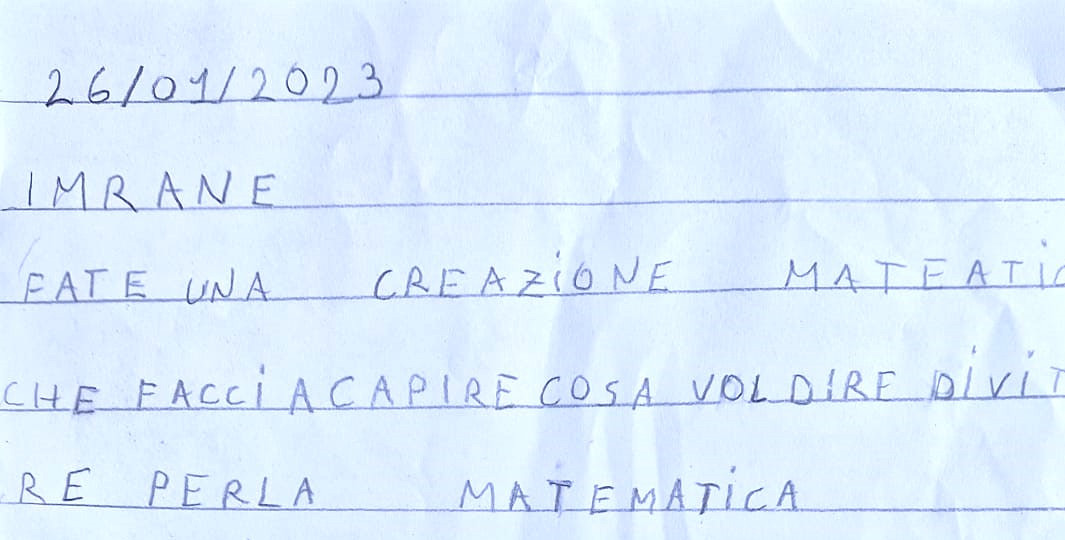 26/01/2023
IMRANE
FATE UNA CREAZIONE MATEATIC
CHE FACCIA CAPIRE COSA VOL DIRE DIVIT
RE PERLA MATEMATICA